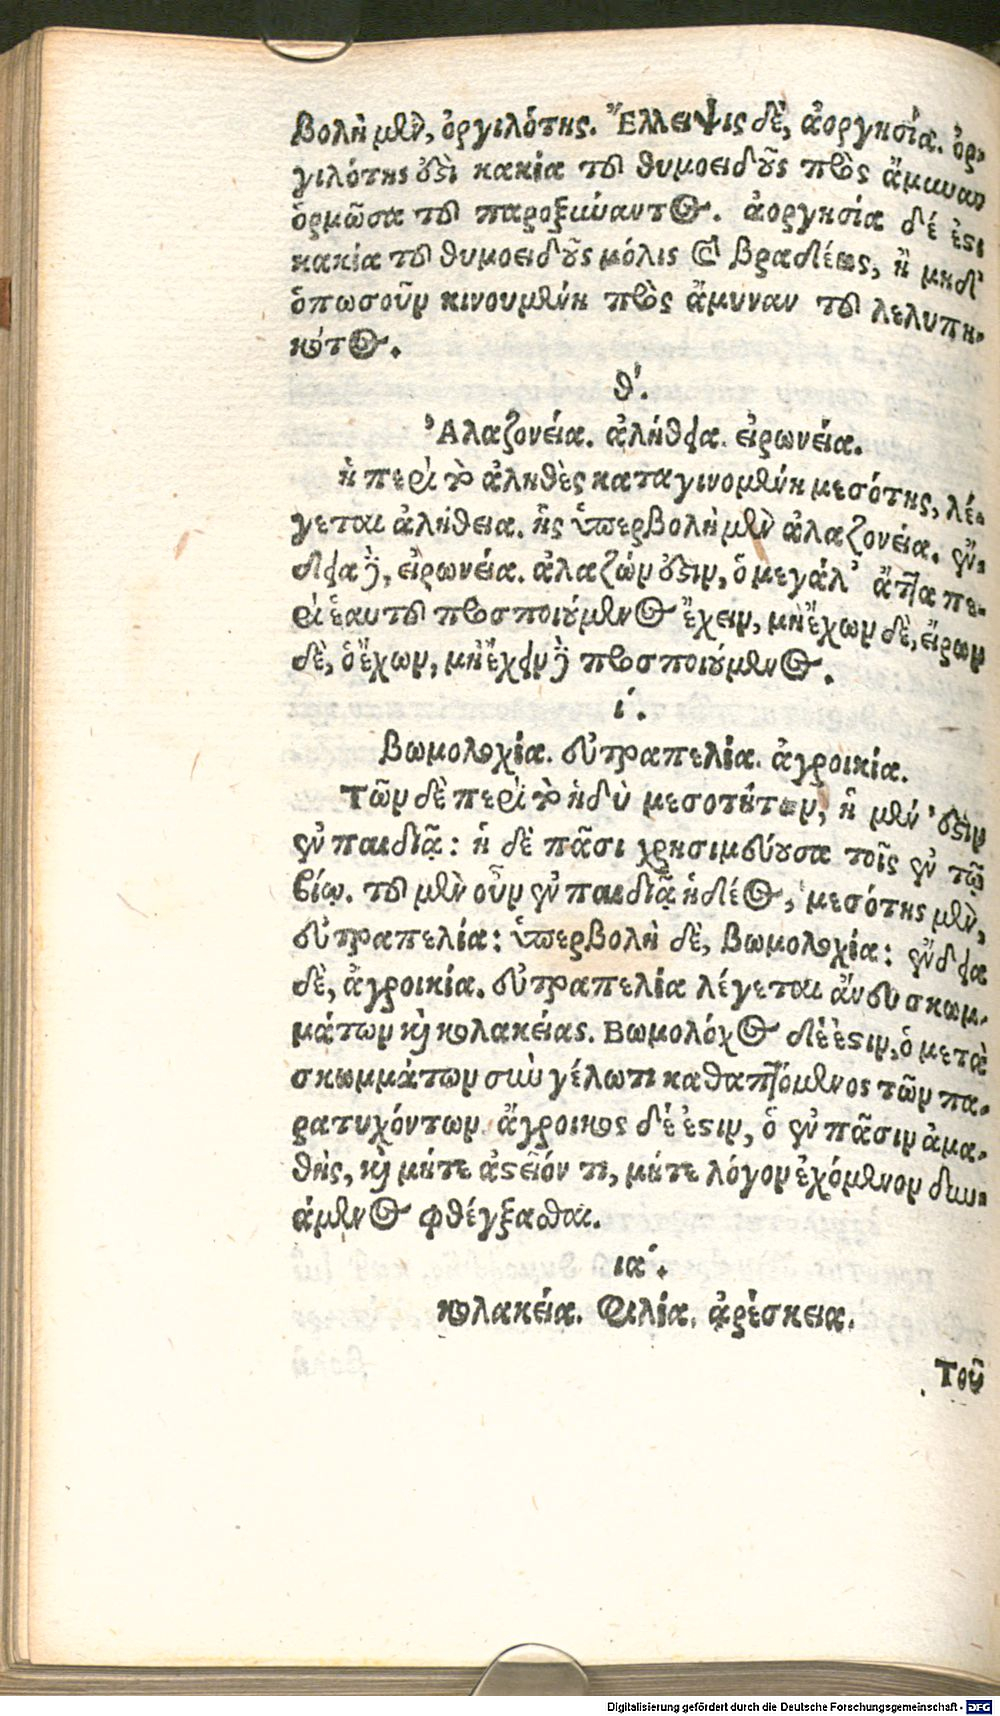 βολὴ μὲν, ὀργιλότης. Ἔλλειψις δὲ, ἀοργησία. ὀρ-
γιλότης ἐστὶ κακία τοῦ θυμοειδοῦς πρὸς ἄμυναν
ὁρμῶσα τοῦ παροξύναντος. ἀοργησία δέ ἐστι
κακία τοῦ θυμοειδοῦς μόλις καὶ βραδέως, ἢ μηδ'
ὁπωσοῦν κινουμένη πρὸς ἄμυναν τοῦ λελυπη-
κότος.
θ'.
Ἀλαζονεία. ἀλήθεια. εἰρωνεία.
ἡ περὶ τὸ ἀληθὲς καταγινομένη μεσότης, λέ-
γεται ἀλήθεια. ἧς ὑπερβολὴ μὲν ἀλαζονεία. ἔν-
δεια δὲ, εἰρωνεία. ἀλαζών ἐστιν, ὁ μεγάλ' ἄττα πε-
ρὶ ἑαυτοῦ προσποιούμενος ἔχειν, μὴ ἔχων δὲ, εἴρων
δὲ, ὁ ἔχων, μὴ ἔχειν δὲ προσποιούμενος.
ι'.
Βωμολοχία. εὐτραπελία. ἀγροικία.
Τῶν δὲ περὶ τὸ ἡδὺ μεσοτήτων, ἡ μέν ἐστιν
ἐν παιδιᾷ: ἡ δὲ πᾶσι χρησιμεύουσα τοῖς ἐν τῷ
βίῳ. τοῦ μὲν οὖν ἐν παιδιᾷ ἡδέος, μεσότης μὲν,
εὐτραπελία: ὑπερβολὴ δὲ, βωμολοχία: ἔνδεια
δὲ, ἀγροικία. εὐτραπελία λέγεται ἄνευ σκωμ-
μάτων καὶ κολακείας. Βωμολόχος δέ ἐστιν, ὁ μετὰ
σκωμμάτων σὺν γέλωτι καθαπτόμενος τῶν πα-
ρατυχόντων. ἄγροικος δέ ἐστιν, ὁ ἐν πᾶσιν ἀμα-
θὴς, καὶ μήτε ἀστεῖόν τι, μήτε λόγον ἐχόμενον δυν-
άμενος φθέγξασθαι.
ια'.
κολακεία. Φιλία. ἀρέσκεια.
Τοῦ
Digitalisierung gefördert durch die Deutsche Forschungsgemeinschaft - DFG